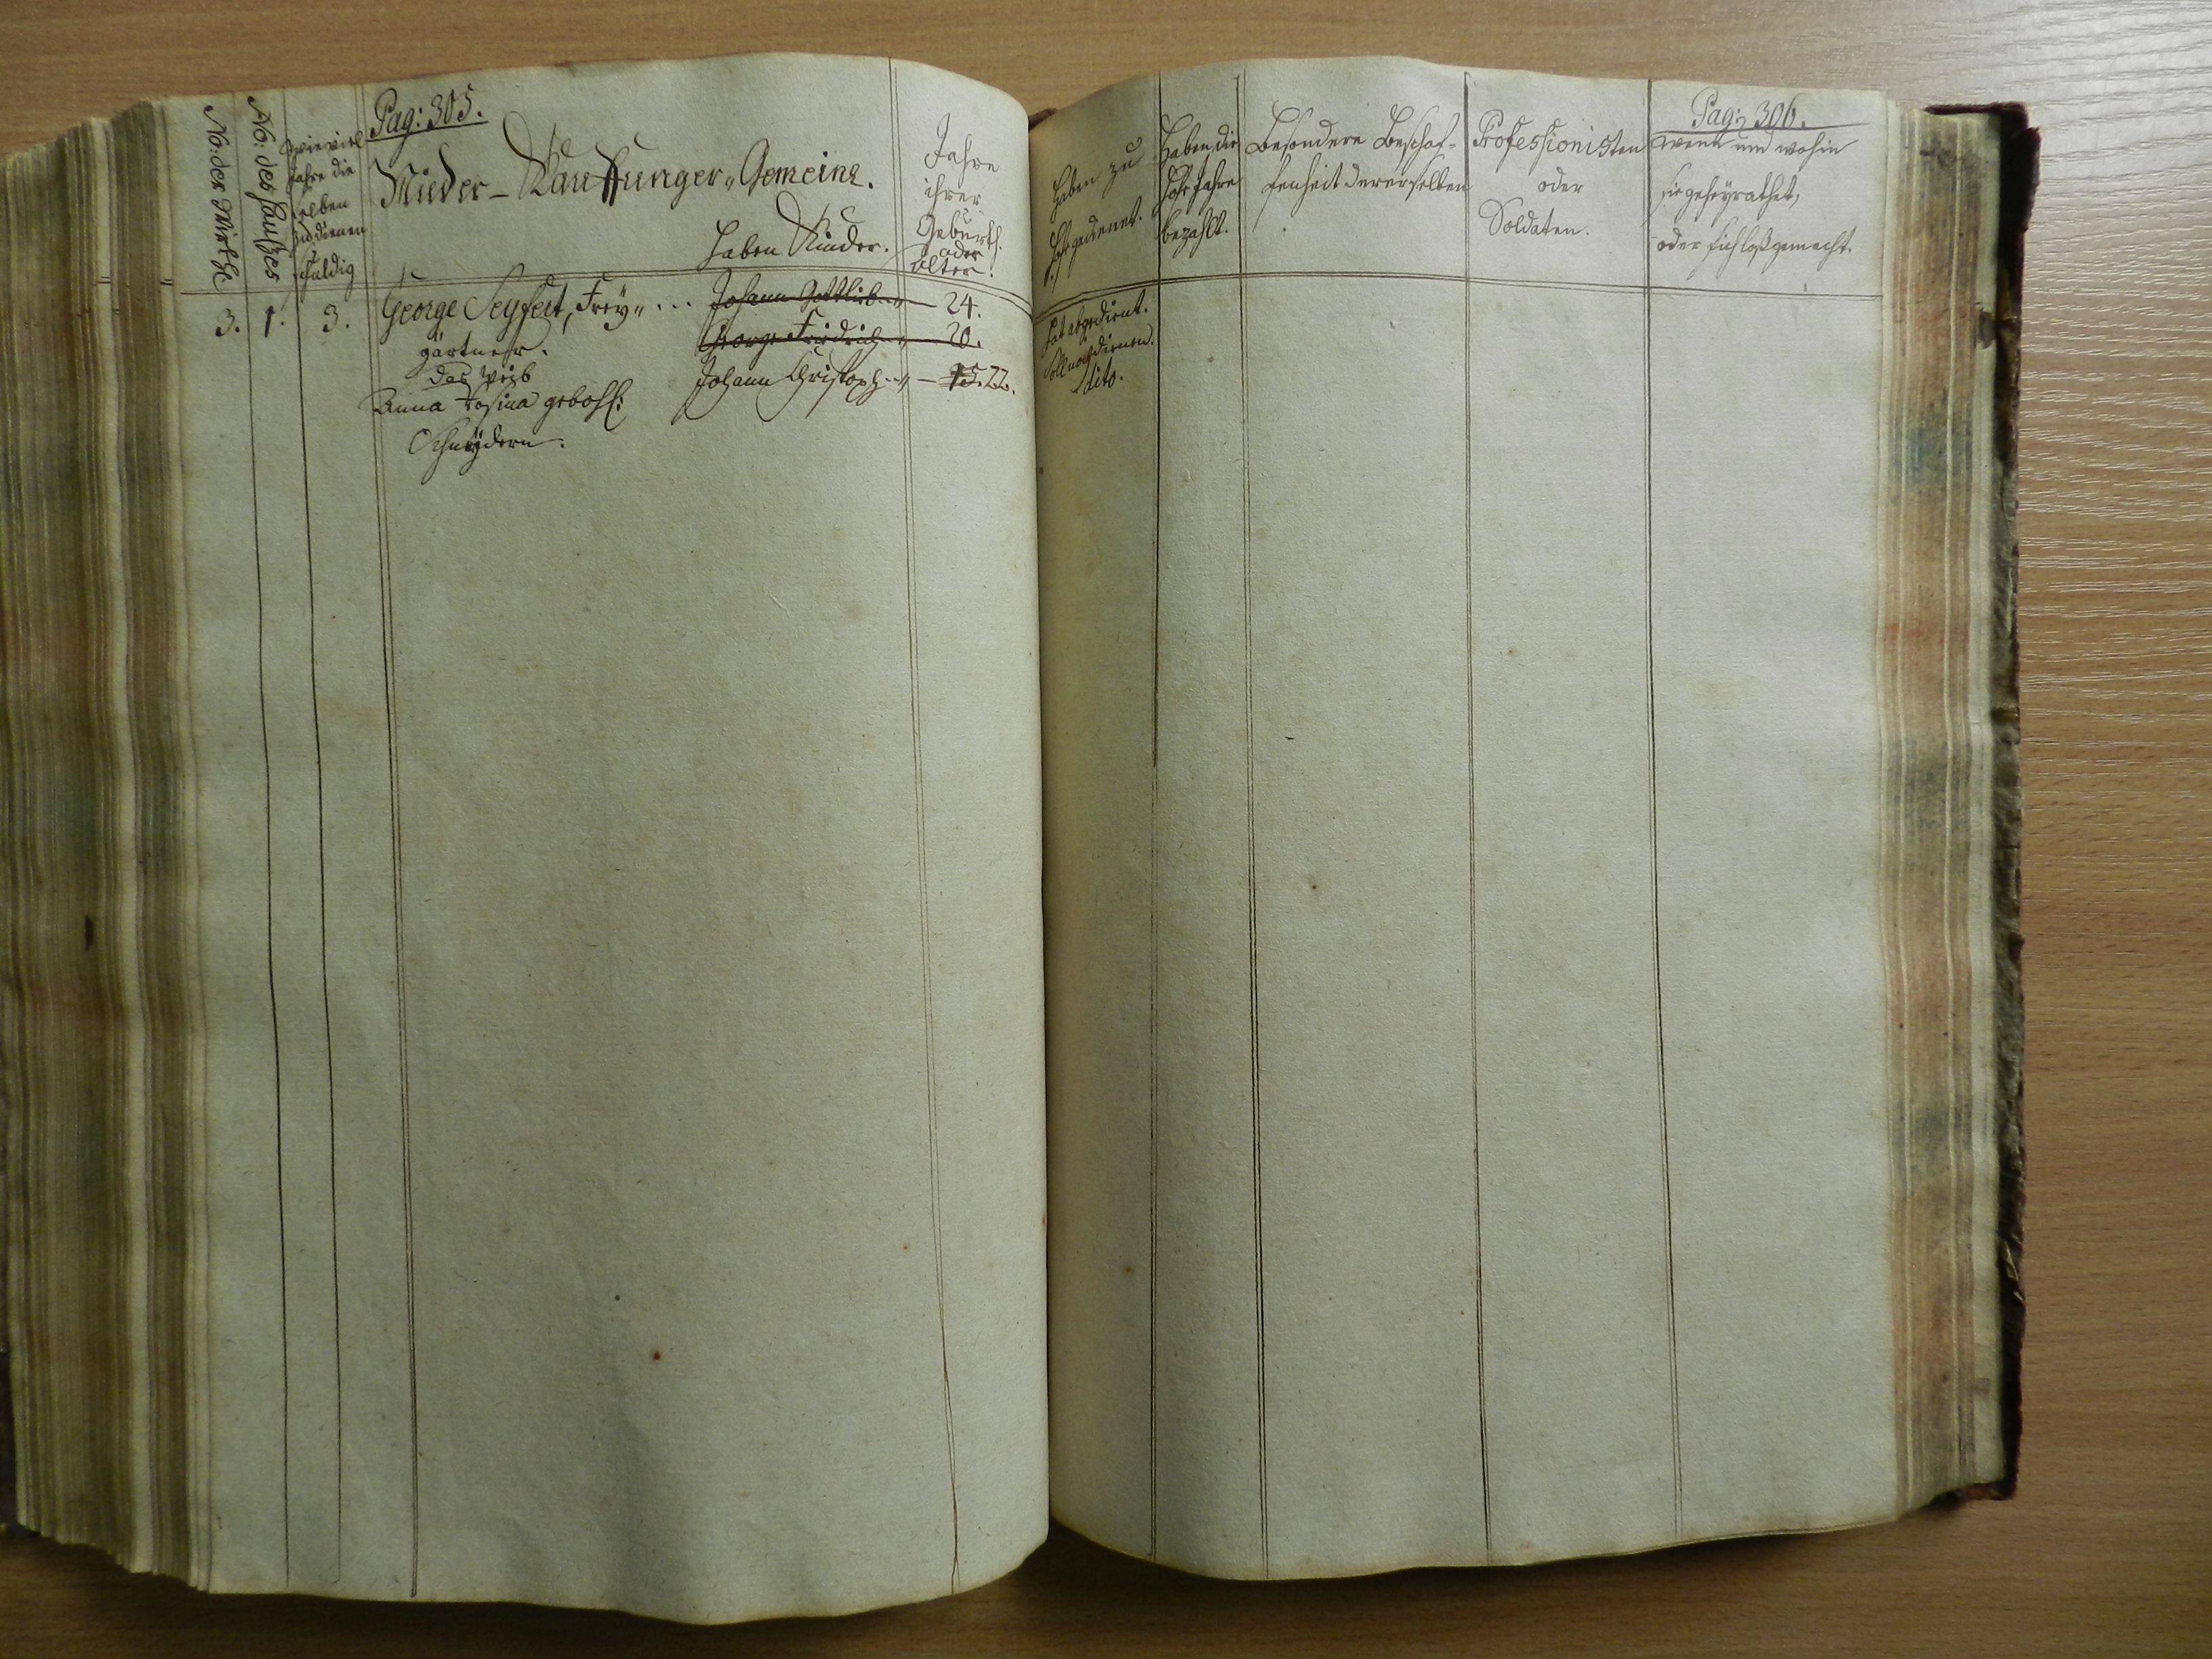 Pag: 305.
No: der Wirthe
No: des Haußes
wieviel
Jahre die
selben
zu dienen
schuldig
Nieder-Kauffunger-Gemeine.
haben Kinder.
Jahre
ihrer
Geburth.
oder
Alter.
3. 1. 3. George Seyfert, Frey„ ... Johann Gottlieb „ — 24.
gärtner. George Friedrich „ — 20.
das Weib Johann Christoph „ — 15. 22.
Anna Rosina gebohr:
Schneydern.
Pag: 306.
haben zu
Hofe gedienet.
haben die
Hofe Jahre
bezahlt.
Besondere Beschaf-
fenheit dererselben
Professionisten
oder
Soldaten.
wenn und wohin
sie geheyrathet,
oder sich loßgemacht.
hat abgedient.
soll noch dienen.
dito.